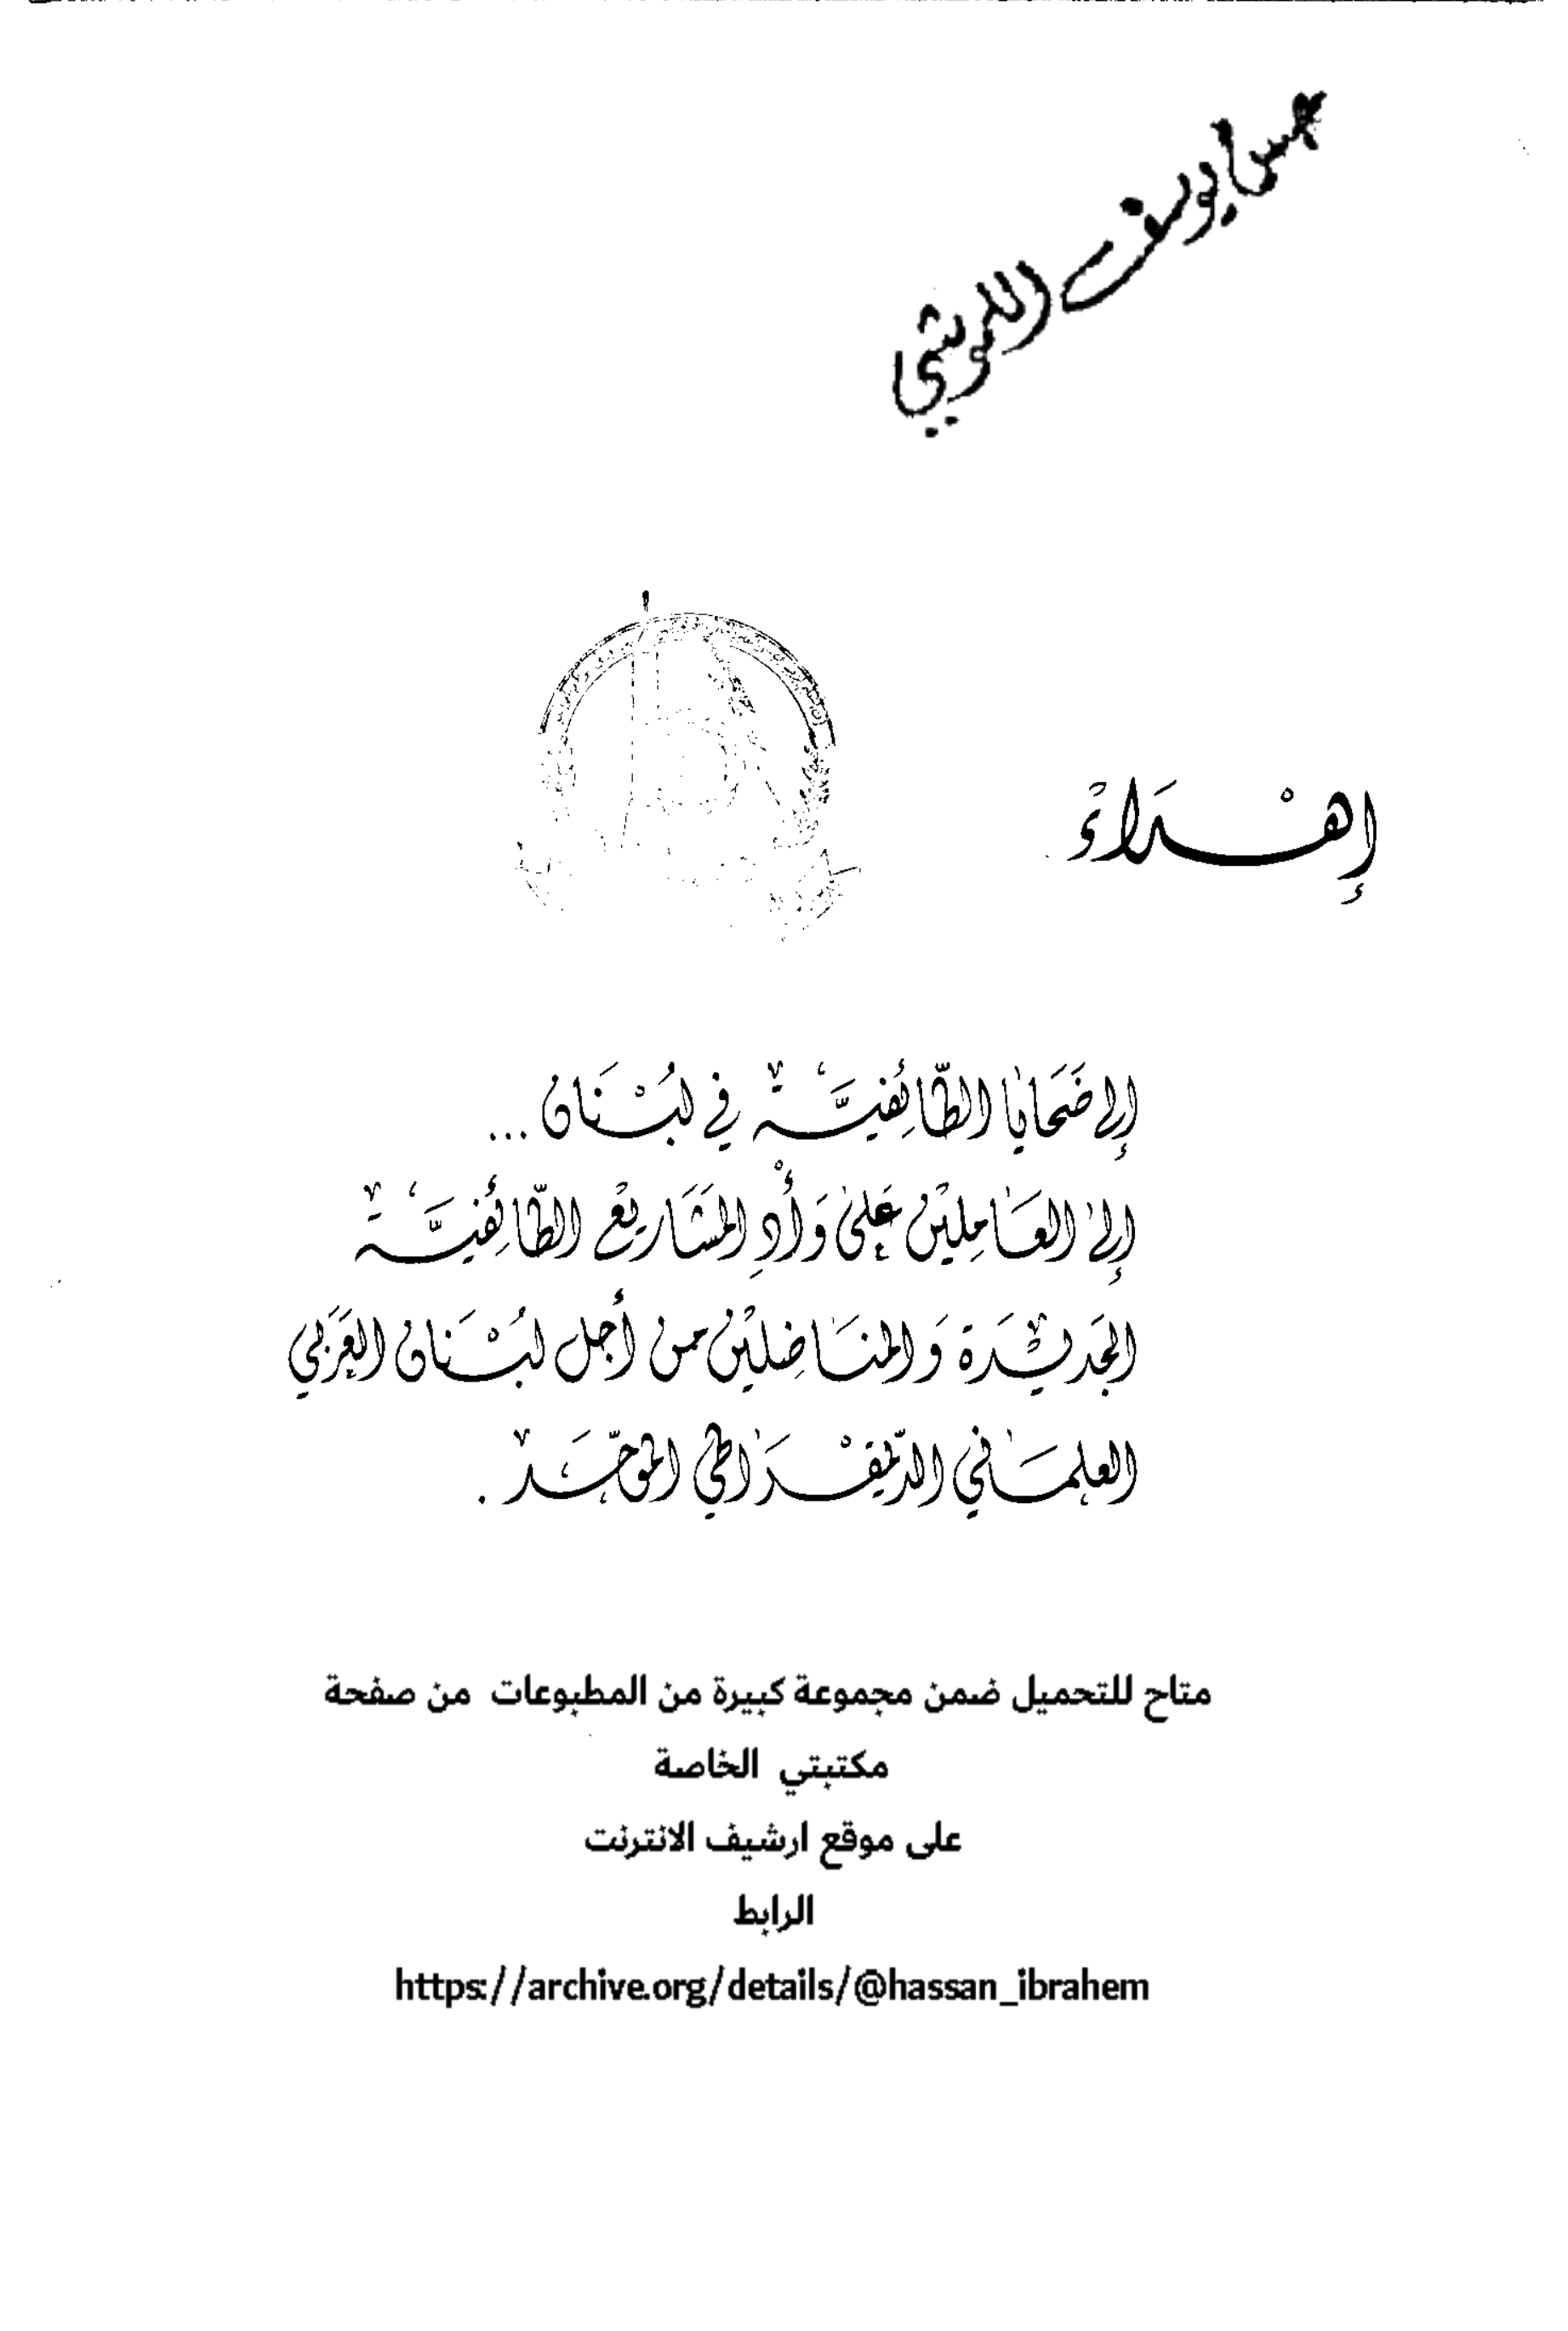 يوسف
إِهْدَاءْ
إلى ضَحَايا الطّائِفيَّة في لبُنَان ...
إلى العَامِليْن عَلى وَأْدِ المشَاريْع الطّائِفيَّة
الجَديْدَة وَالمنَاضِليْن من أجل لبُنَان العَرَبي
العلمَاني الدّيمقْرَاطي الموَحَّد .
متاح للتحميل ضمن مجموعة كبيرة من المطبوعات من صفحة
مكتبتي الخاصة
على موقع ارشيف الانترنت
الرابط
https://archive.org/details/@hassan_ibrahem